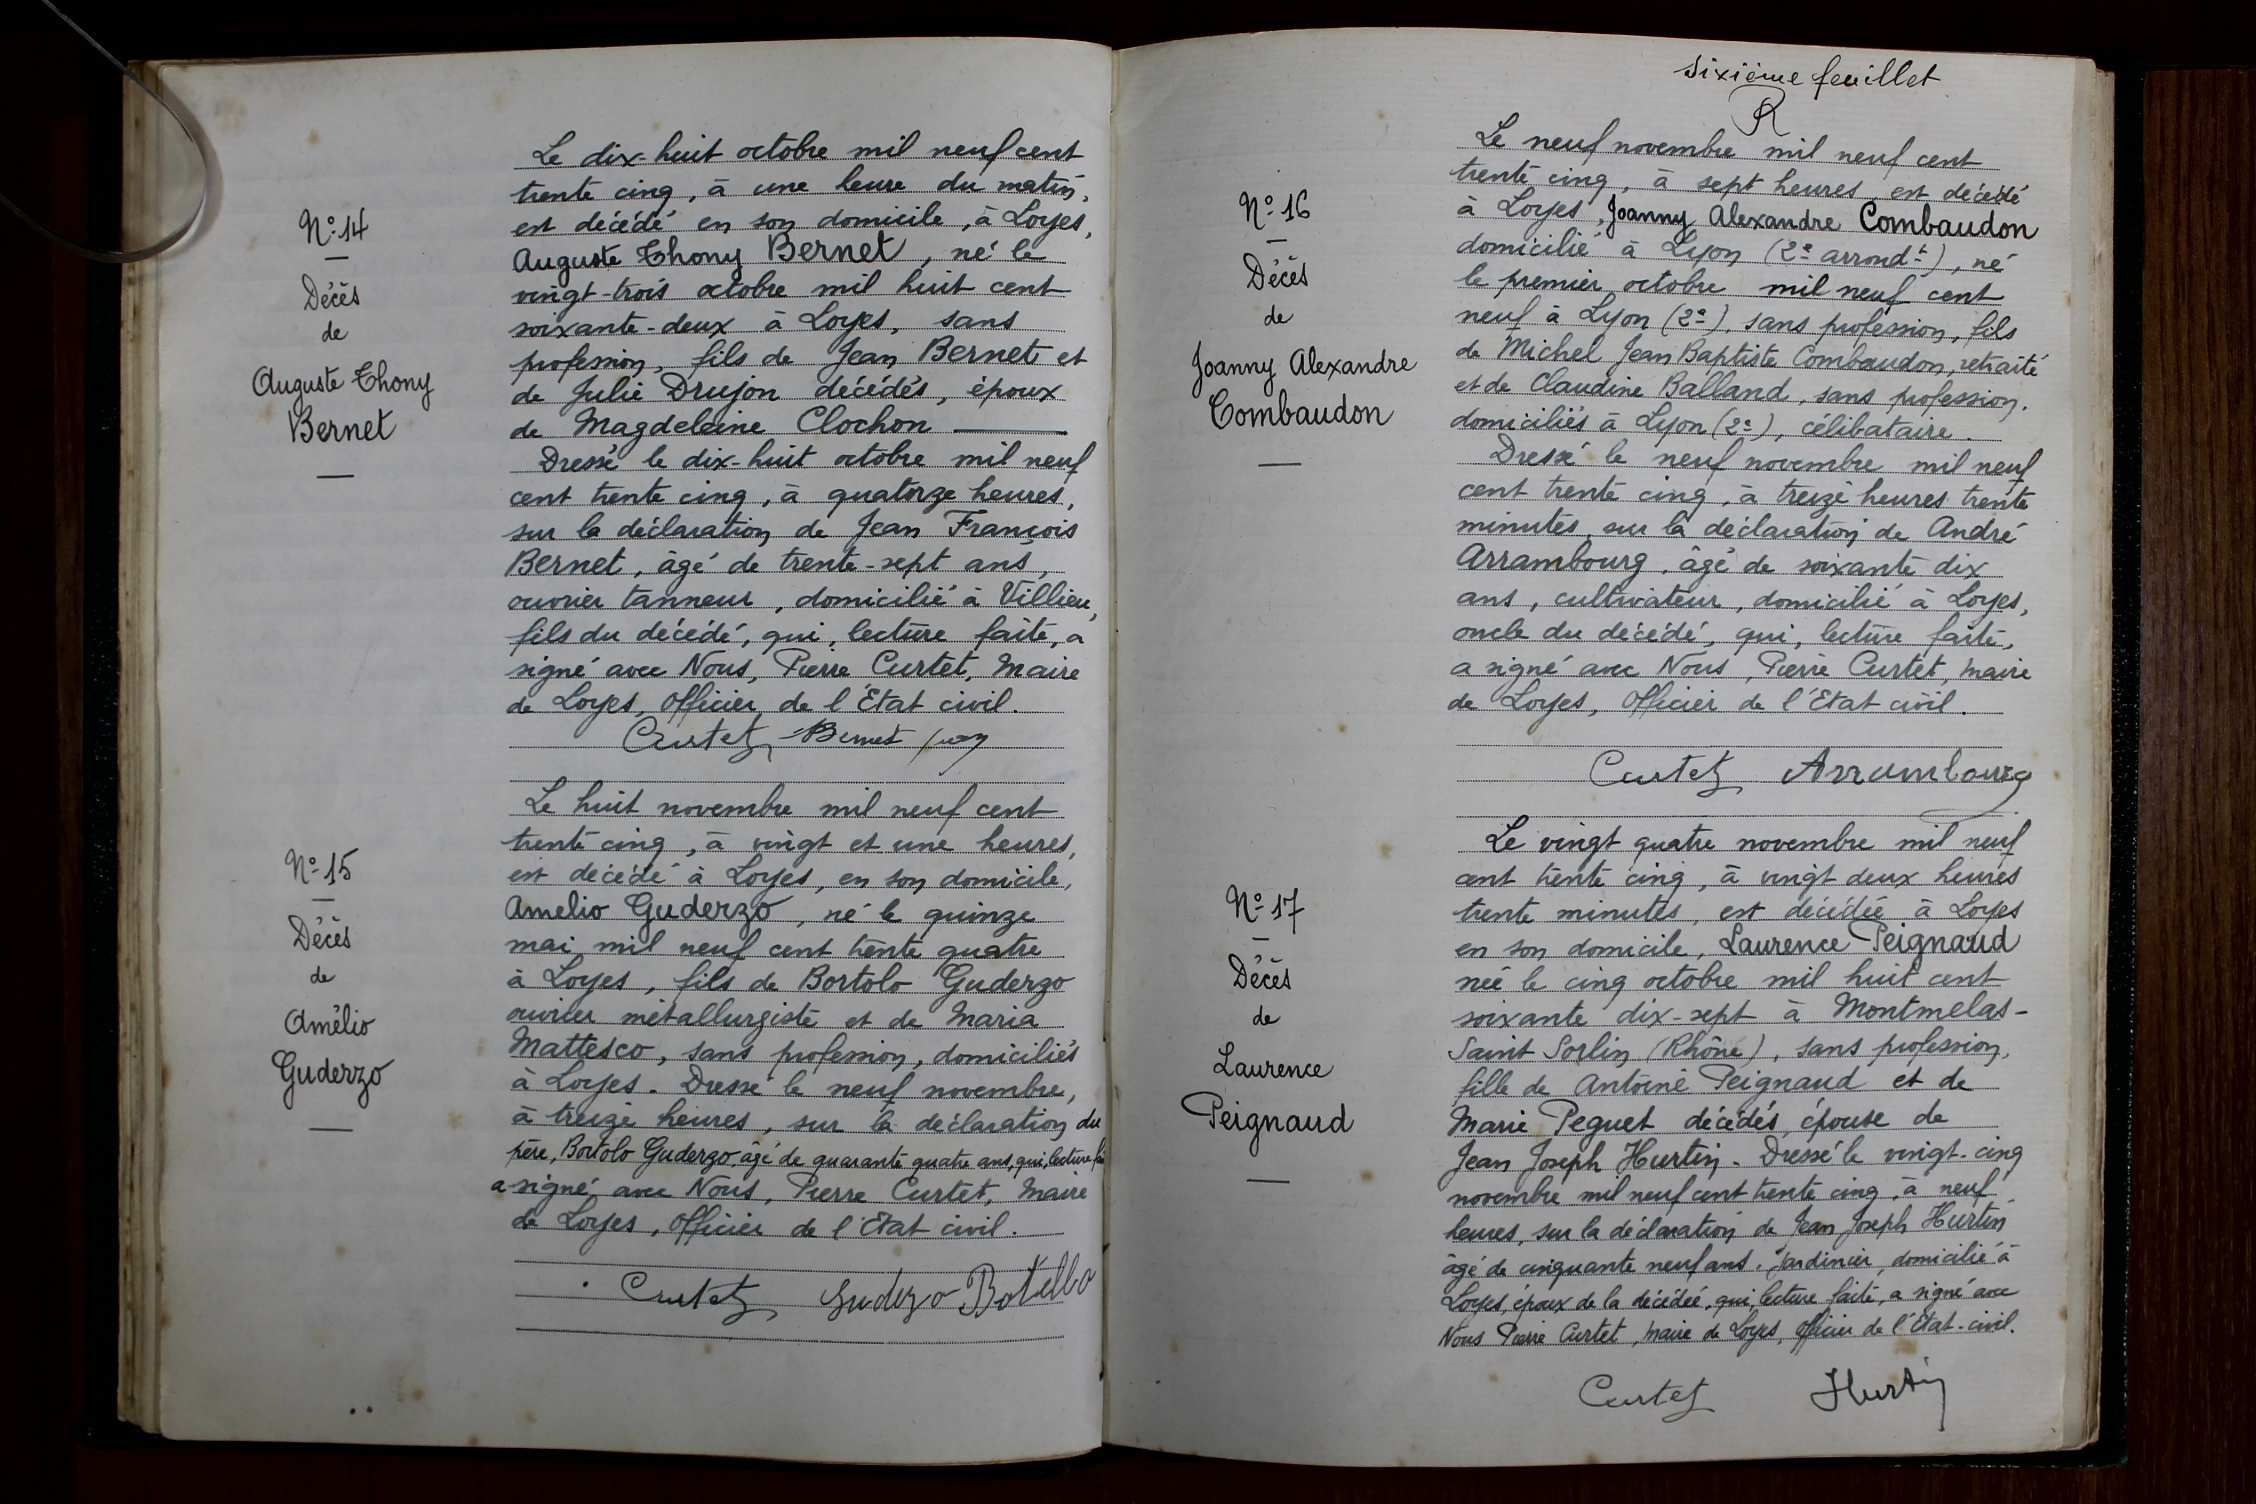 N° 14
Décès
de
Auguste Thony
Bernet
Le dix-huit octobre mil neuf cent
trente cinq, à une heure du matin,
est décédé en son domicile, à Loyes,
Auguste Thony Bernet, né le
vingt-trois octobre mil huit cent
soixante-deux à Loyes, sans
profession, fils de Jean Bernet et
de Julie Drujon décédés, époux
de Magdeleine Clochon
Dressé le dix-huit octobre mil neuf
cent trente cinq, à quatorze heures,
sur la déclaration de Jean François
Bernet, âgé de trente-sept ans,
ouvrier tanneur, domicilié à Villieu,
fils du décédé, qui, lecture faite, a
signé avec Nous, Pierre Curtet, Maire
de Loyes, Officier de l'État civil.
Curtet Bernet
N° 15
Décès
de
Amélio
Guderzo
Le huit novembre mil neuf cent
trente cinq, à vingt et une heures,
est décédé à Loyes, en son domicile,
Amelio Guderzo, né le quinze
mai mil neuf cent trente quatre
à Loyes, fils de Bortolo Guderzo
ouvrier métallurgiste et de Maria
Mattesco, sans profession, domiciliés
à Loyes. Dressé le neuf novembre,
à treize heures, sur la déclaration du
père, Bortolo Guderzo, âgé de quarante quatre ans, qui, lecture
a signé avec Nous, Pierre Curtet, Maire
de Loyes, Officier de l'Etat civil.
Curtet Guderzo Botello
Sixième feuillet
R
N° 16
Décès
de
Joanny Alexandre
Combaudon
Le neuf novembre mil neuf cent
trente cinq, à sept heures est décédé
à Loyes, Joanny Alexandre Combaudon
domicilié à Lyon (2e arrondt), né
le premier octobre mil neuf cent
neuf à Lyon (2e), sans profession, fils
de Michel Jean Baptiste Combaudon, retraité
et de Claudine Balland, sans profession,
domiciliés à Lyon (2e), célibataire.
Dressé le neuf novembre mil neuf
cent trente cinq, à treize heures trente
minutes, sur la déclaration de André
Arrambourg, âgé de soixante dix
ans, cultivateur, domicilié à Loyes,
oncle du décédé, qui, lecture faite,
a signé avec Nous, Pierre Curtet, Maire
de Loyes, Officier de l'Etat civil.
Curtet Arrambourg
N° 17
Décès
de
Laurence
Peignaud
Le vingt quatre novembre mil neuf
cent trente cinq, à vingt deux heures
trente minutes, est décédée à Loyes
en son domicile, Laurence Peignaud
née le cinq octobre mil huit cent
soixante dix-sept à Montmelas-
Saint Sorlin (Rhône), sans profession,
fille de Antoine Peignaud et de
Marie Peguet décédés, épouse de
Jean Joseph Hurtin. Dressé le vingt-cinq
novembre mil neuf cent trente cinq, à neuf
heures, sur la déclaration de Jean Joseph Hurtin
âgé de cinquante neuf ans, Jardinier, domicilié à
Loyes, époux de la décédée, qui, lecture faite, a signé avec
Nous Pierre Curtet, Maire de Loyes, Officier de l'Etat-civil.
Curtet Hurtin